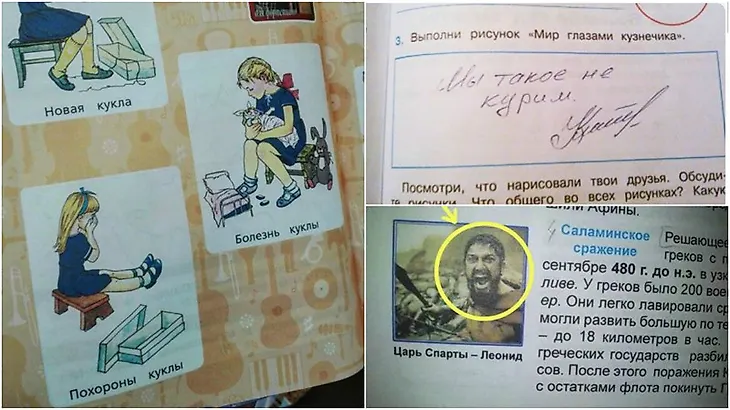 Новая кукла
Болезнь куклы
Похороны куклы
3. Выполни рисунок «Мир глазами кузнечика».
Мы такое не
курим.
Посмотри, что нарисовали твои друзья. Обсуди-
те рисунки. Что общего во всех рисунках? Какую
шили Афины.
Саламинское
сражение
Решающее
греков с п
сентябре 480 г. до н.э. в уз
ливе. У греков было 200 вое
ер. Они легко лавировали
могли развить большую
– до 18 километров в час.
греческих государств разбил
сов. После этого поражения
с остатками флота покинуть Г
Царь Спарты – Леонид